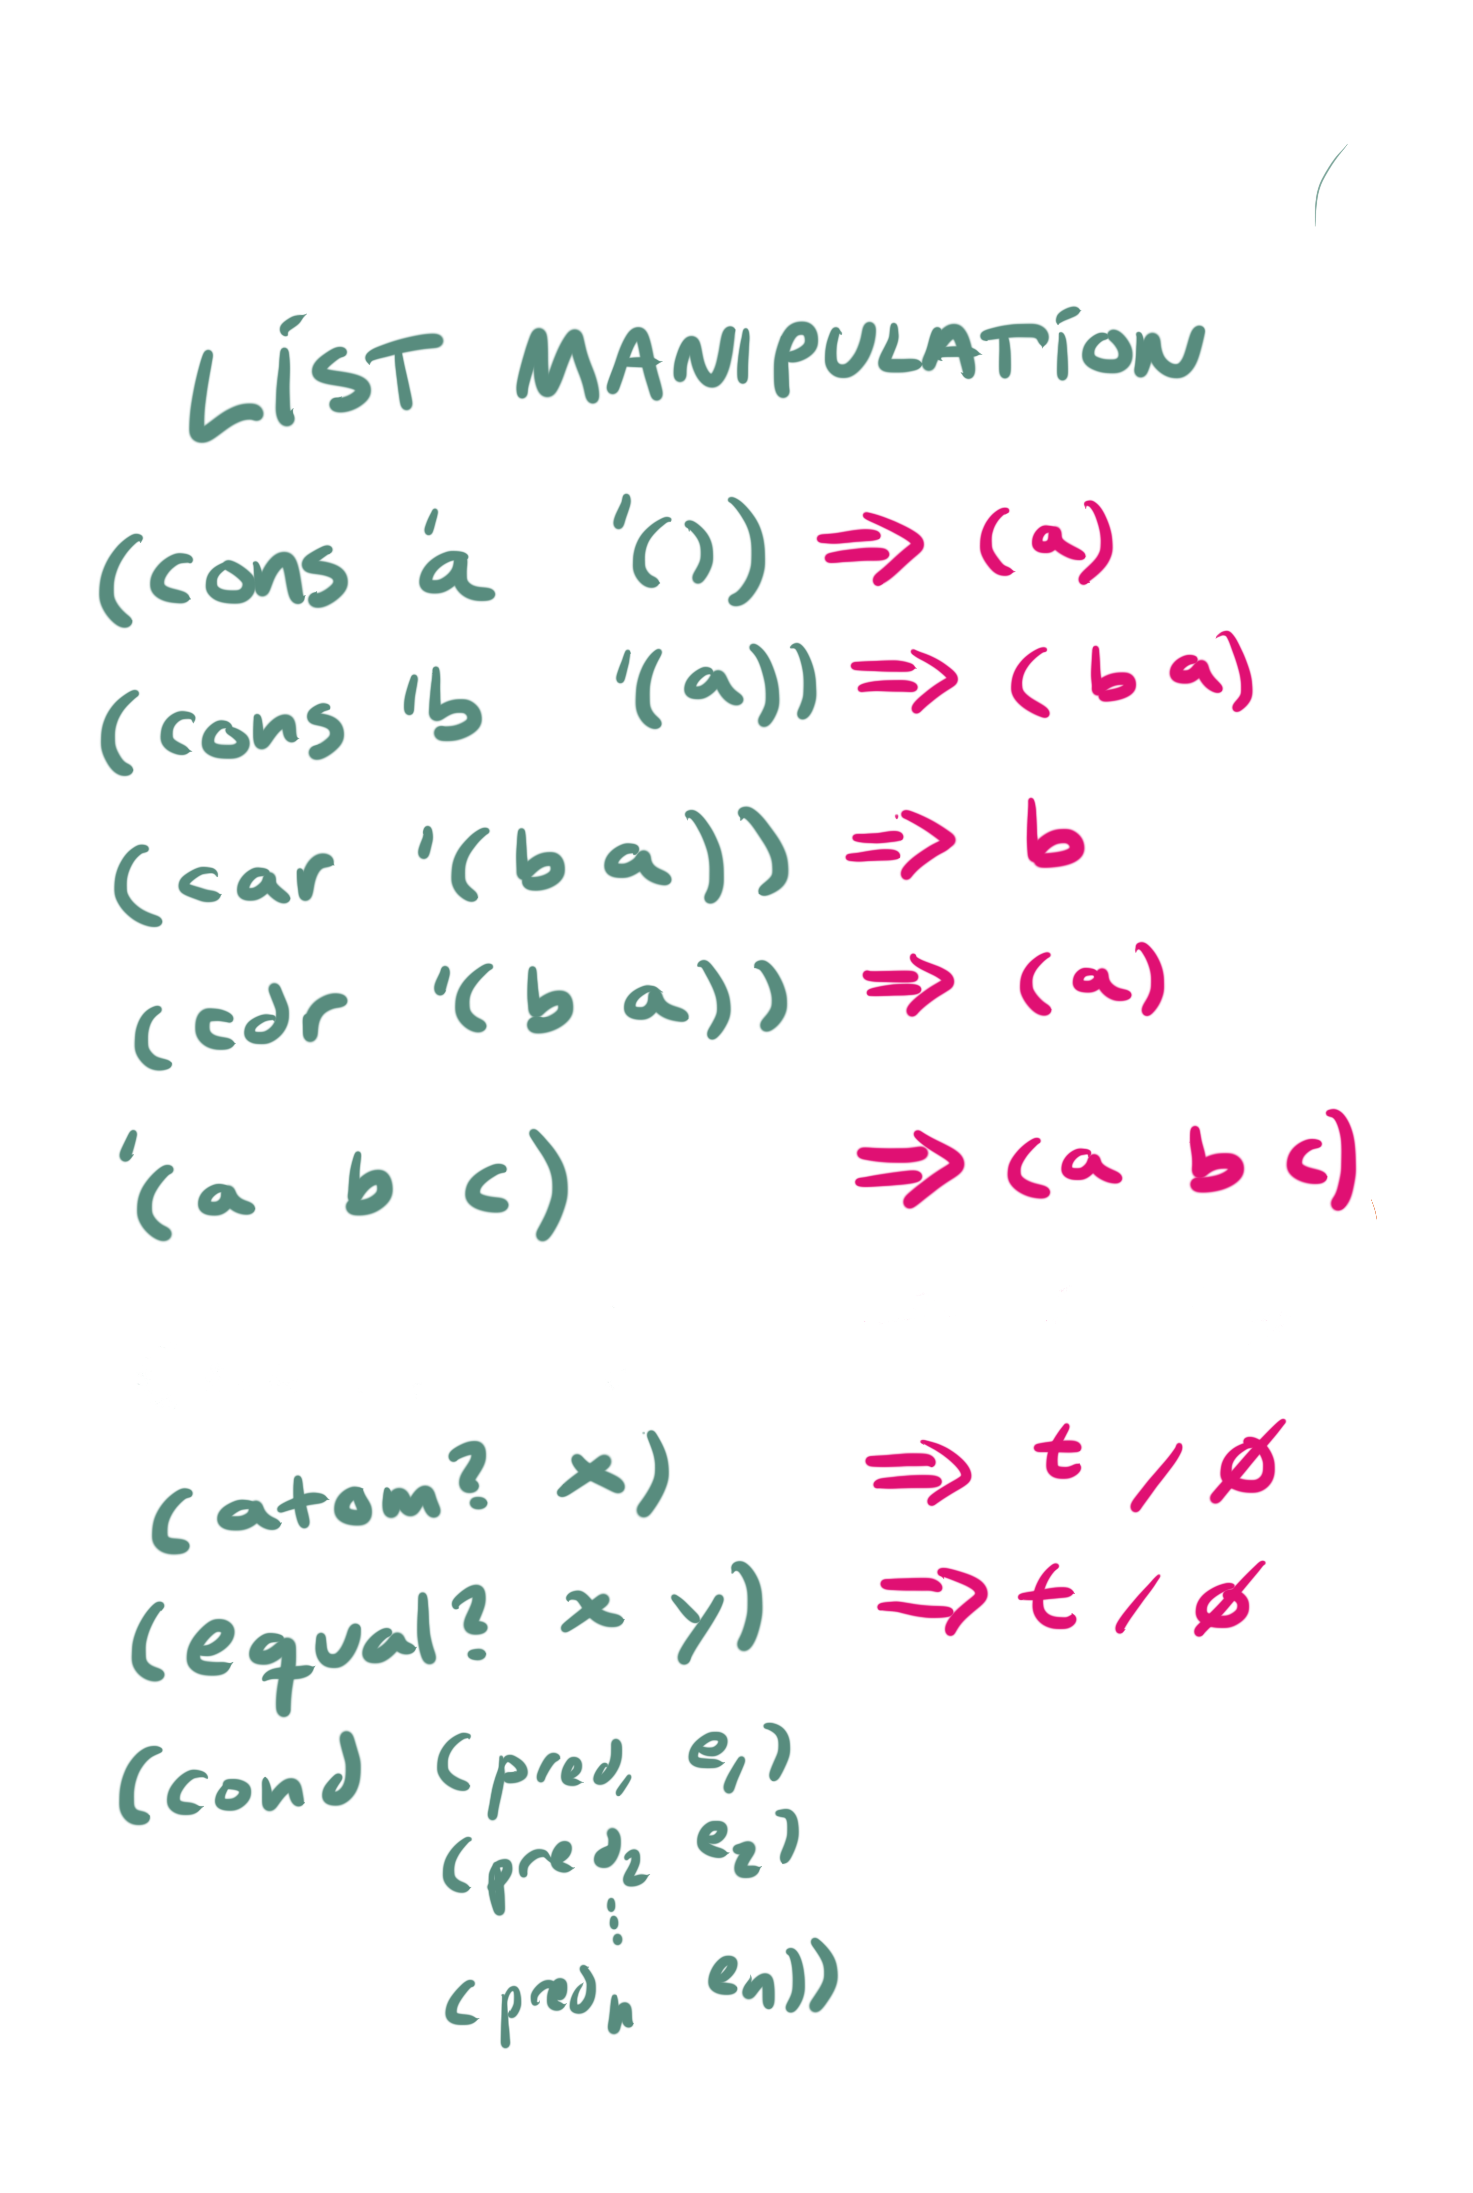 LIST MANIPULATION
(cons 'a '()) ⇒ (a)
(cons 'b '(a)) ⇒ (b a)
(car '(b a)) ⇒ b
(cdr '(b a)) ⇒ (a)
'(a b c) ⇒ (a b c)
(atom? x) ⇒ t / ∅
(equal? x y) ⇒ t / ∅
(cond (pred₁ e₁)
(pred₂ e₂)
⋮
(predₙ eₙ))